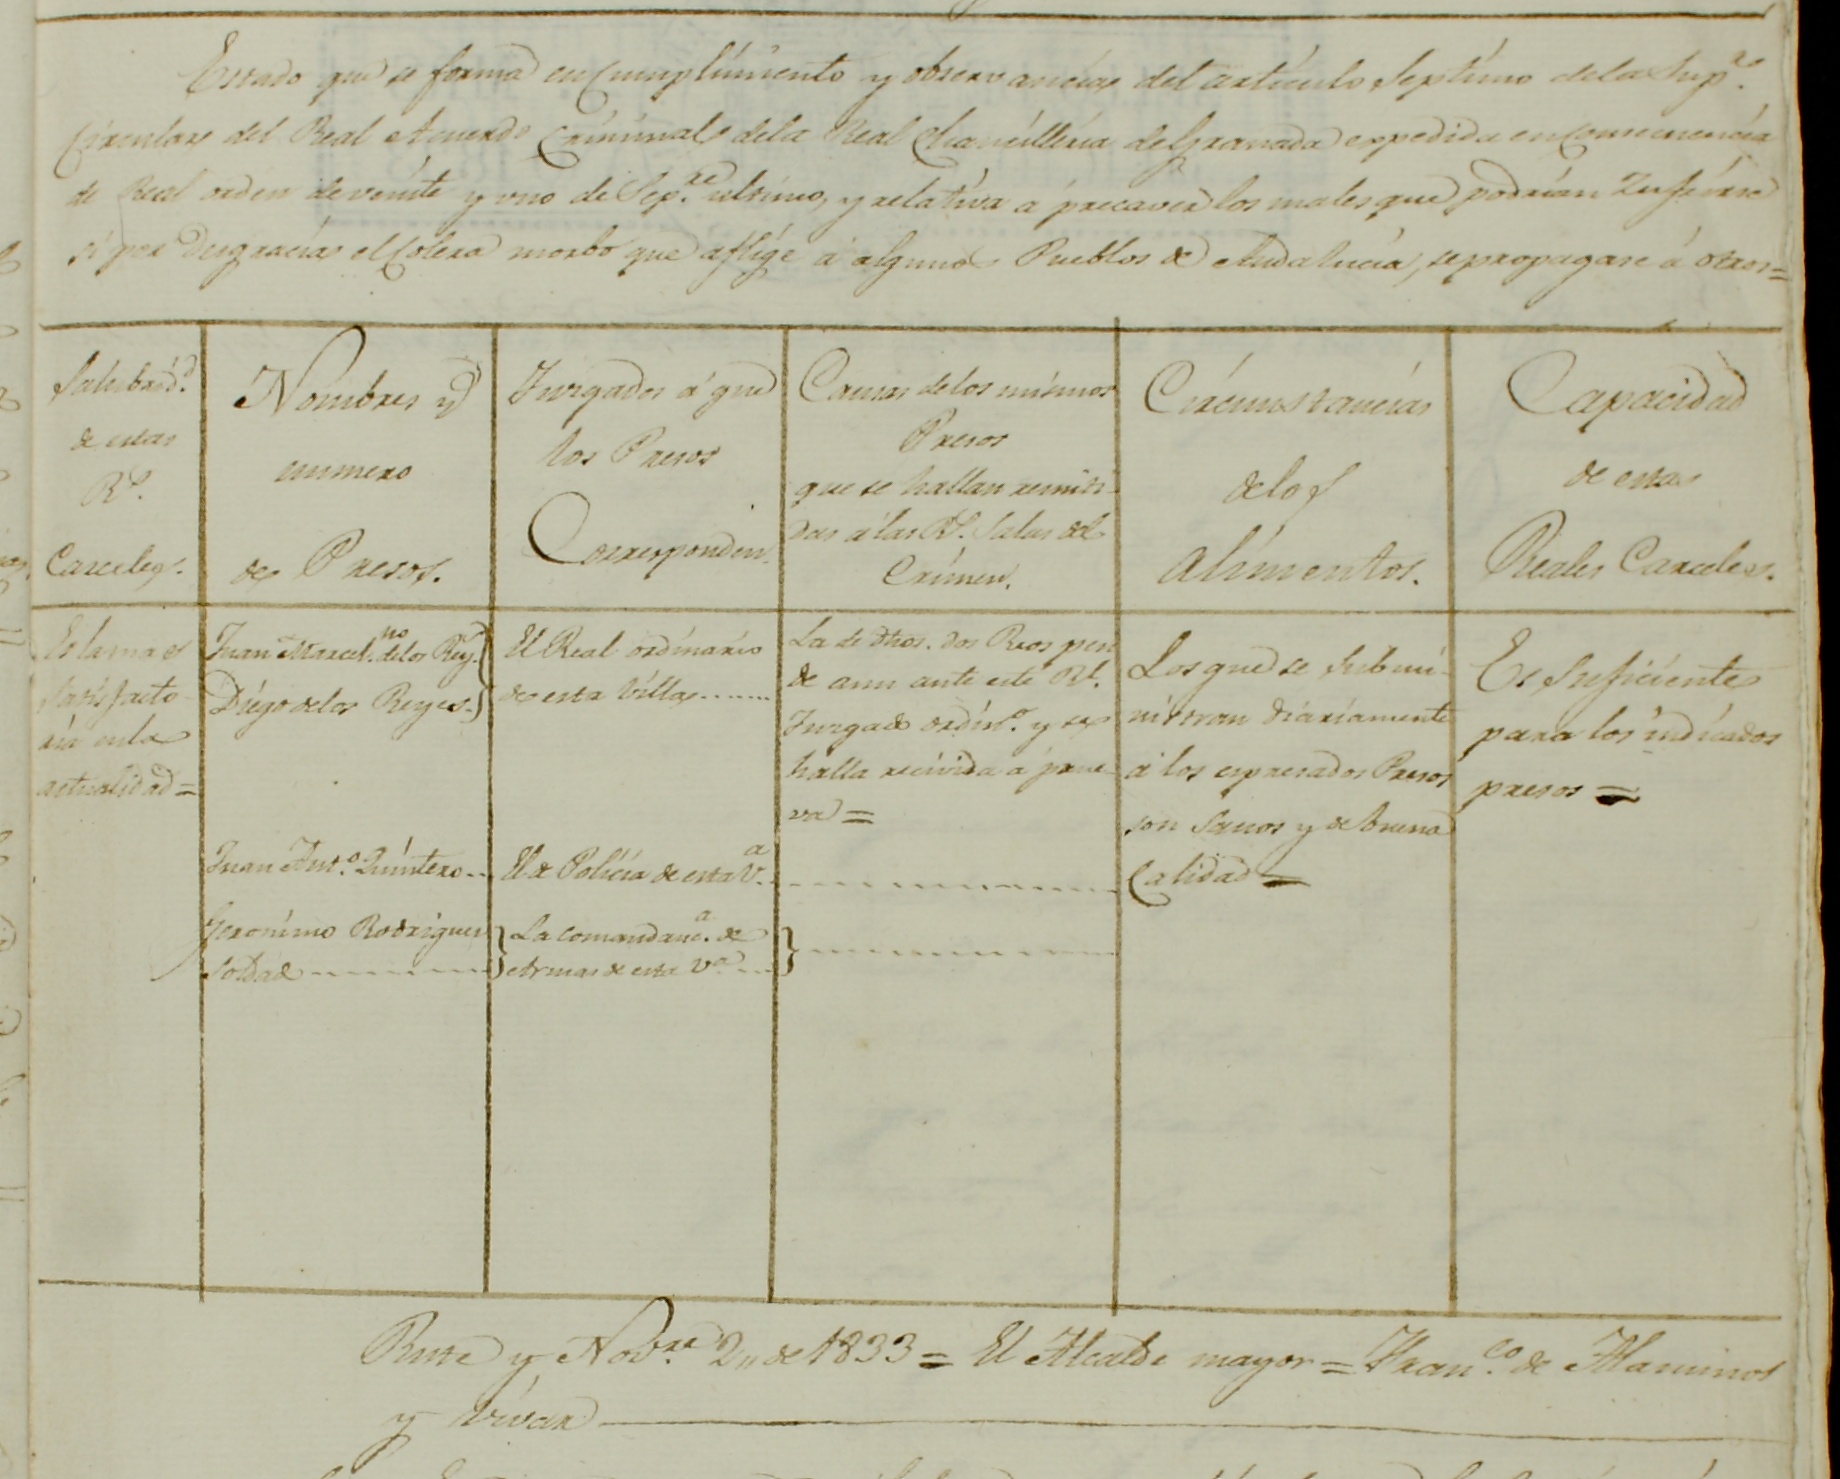 Estado que se forma en Cumplimiento y observancia del articulo Septimo dela Sup.ʳ
Circular del Real Acuerdo Criminal dela Real Chancilleria de Granada expedida en Consecuencia
de Real orden de veinte y uno de Sep.ʳᵉ ultimo, y relativa á precaver los males que podrian Zufrirse
si por desgracia el Colera morbo que aflige á algunos Pueblos de Andalucia, se propagase á otros=
Salubrid.ᵈ
de estas
R.ˢ
Carceles.
Nombres y
numero
de Presos.
Juzgados á que
los Presos
Corresponden.
Causas delos mismos
Presos
que se hallan remiti-
das á las R.ˢ Salas del
Crimen.
Circunstancias
delos
Alimentos.
Capacidad
de estas
Reales Carceles.
Es la mas
Satisfacto-
ria en la
actualidad=
Juan Marcel.ⁿᵒ delos Rey.ˢ
Diego delos Reyes.
El Real ordinario
de esta Villa
La de dhos. dos Reos pen
de aun ante este Rl.
Juzgado ordin.º y se
halla recivida á prue-
va=
Los que se Submi-
nistran diariamente
á los expresados Presos
son Sanos y de buena
Calidad=
Es Suficiente
para los indicados
presos=
Juan Ant.º Quintero
El de Policia de esta V.ᵃ
Geronimo Rodriguez
Soldado
La comandanc.ᵃ de
Armas de esta V.ᵃ
Rute y Nov.ʳᵉ 2,, de 1833= El Alcalde mayor= Fran.ᶜᵒ de Alaminos
y Vivar